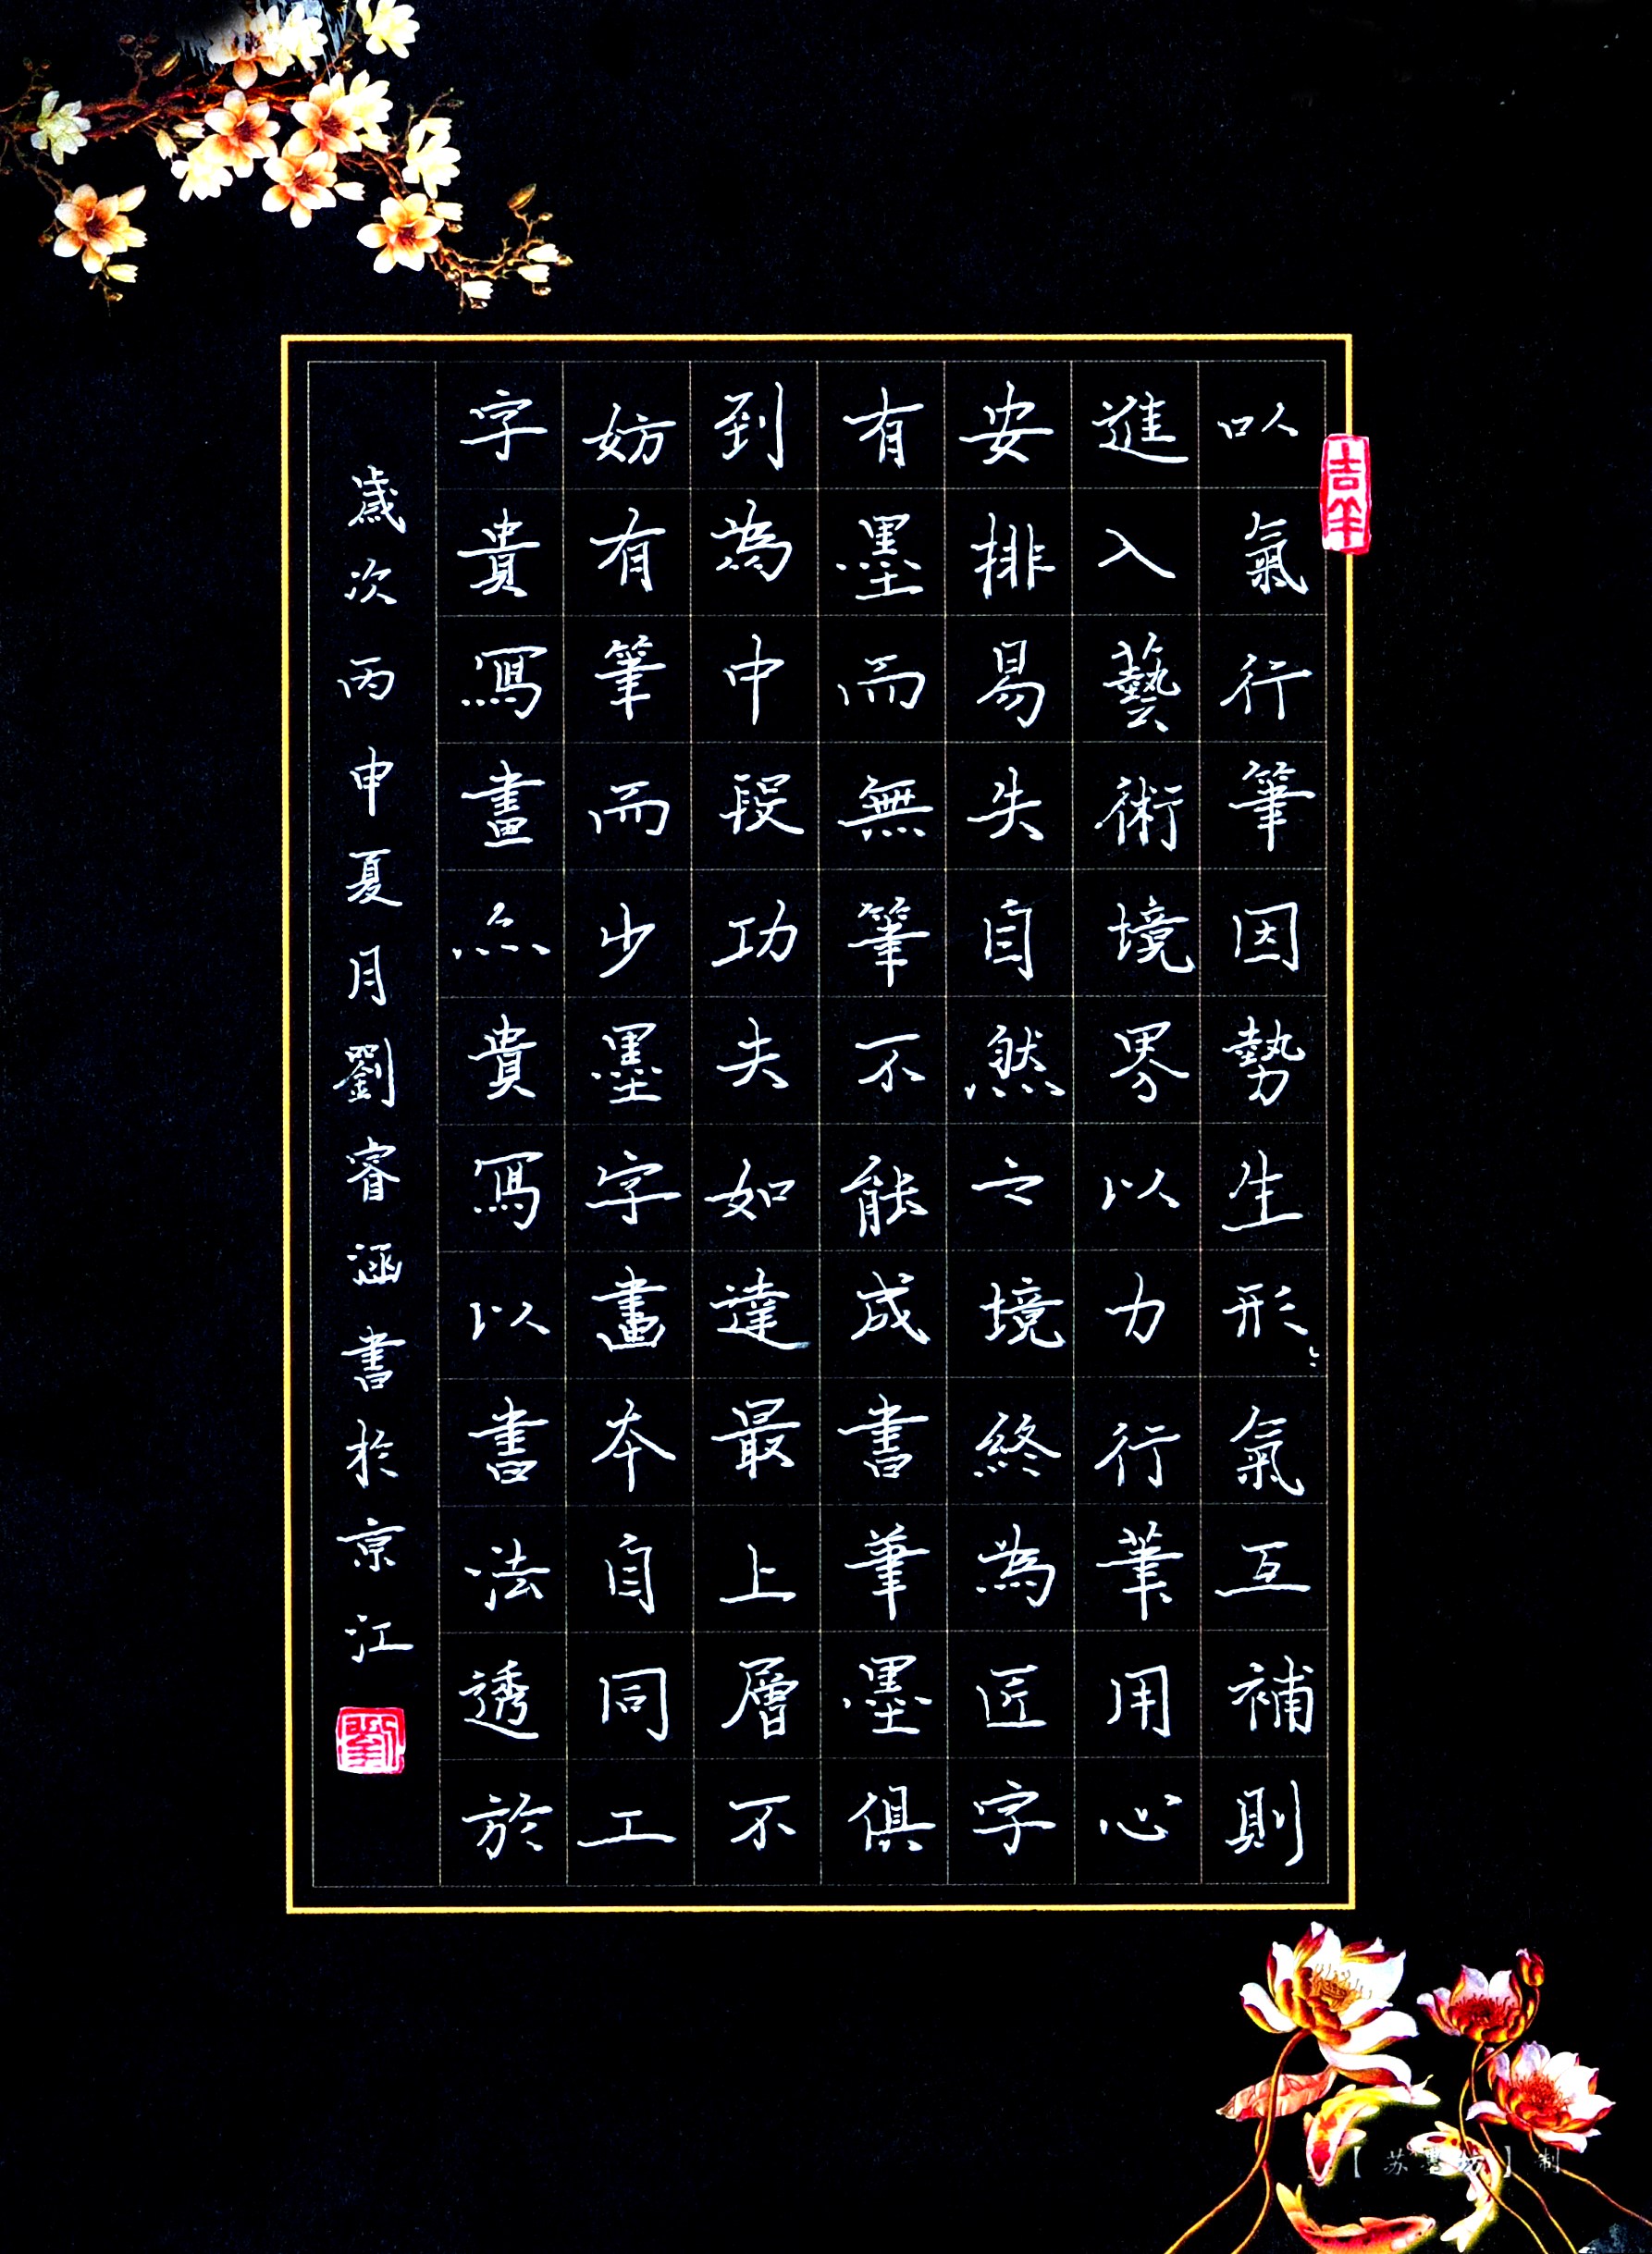 以氣行筆因勢生形〻氣互補則
進入藝術境界以力行筆用心
安排易失自然之境終為匠字
有墨而無筆不能成書筆墨俱
到為中段功夫如達最上層不
妨有筆而少墨字畫本自同工
字貴寫畫亦貴寫以書法透於
歲次丙申夏月劉睿涵書於京江
吉羊
劉
【苏墨坊】制